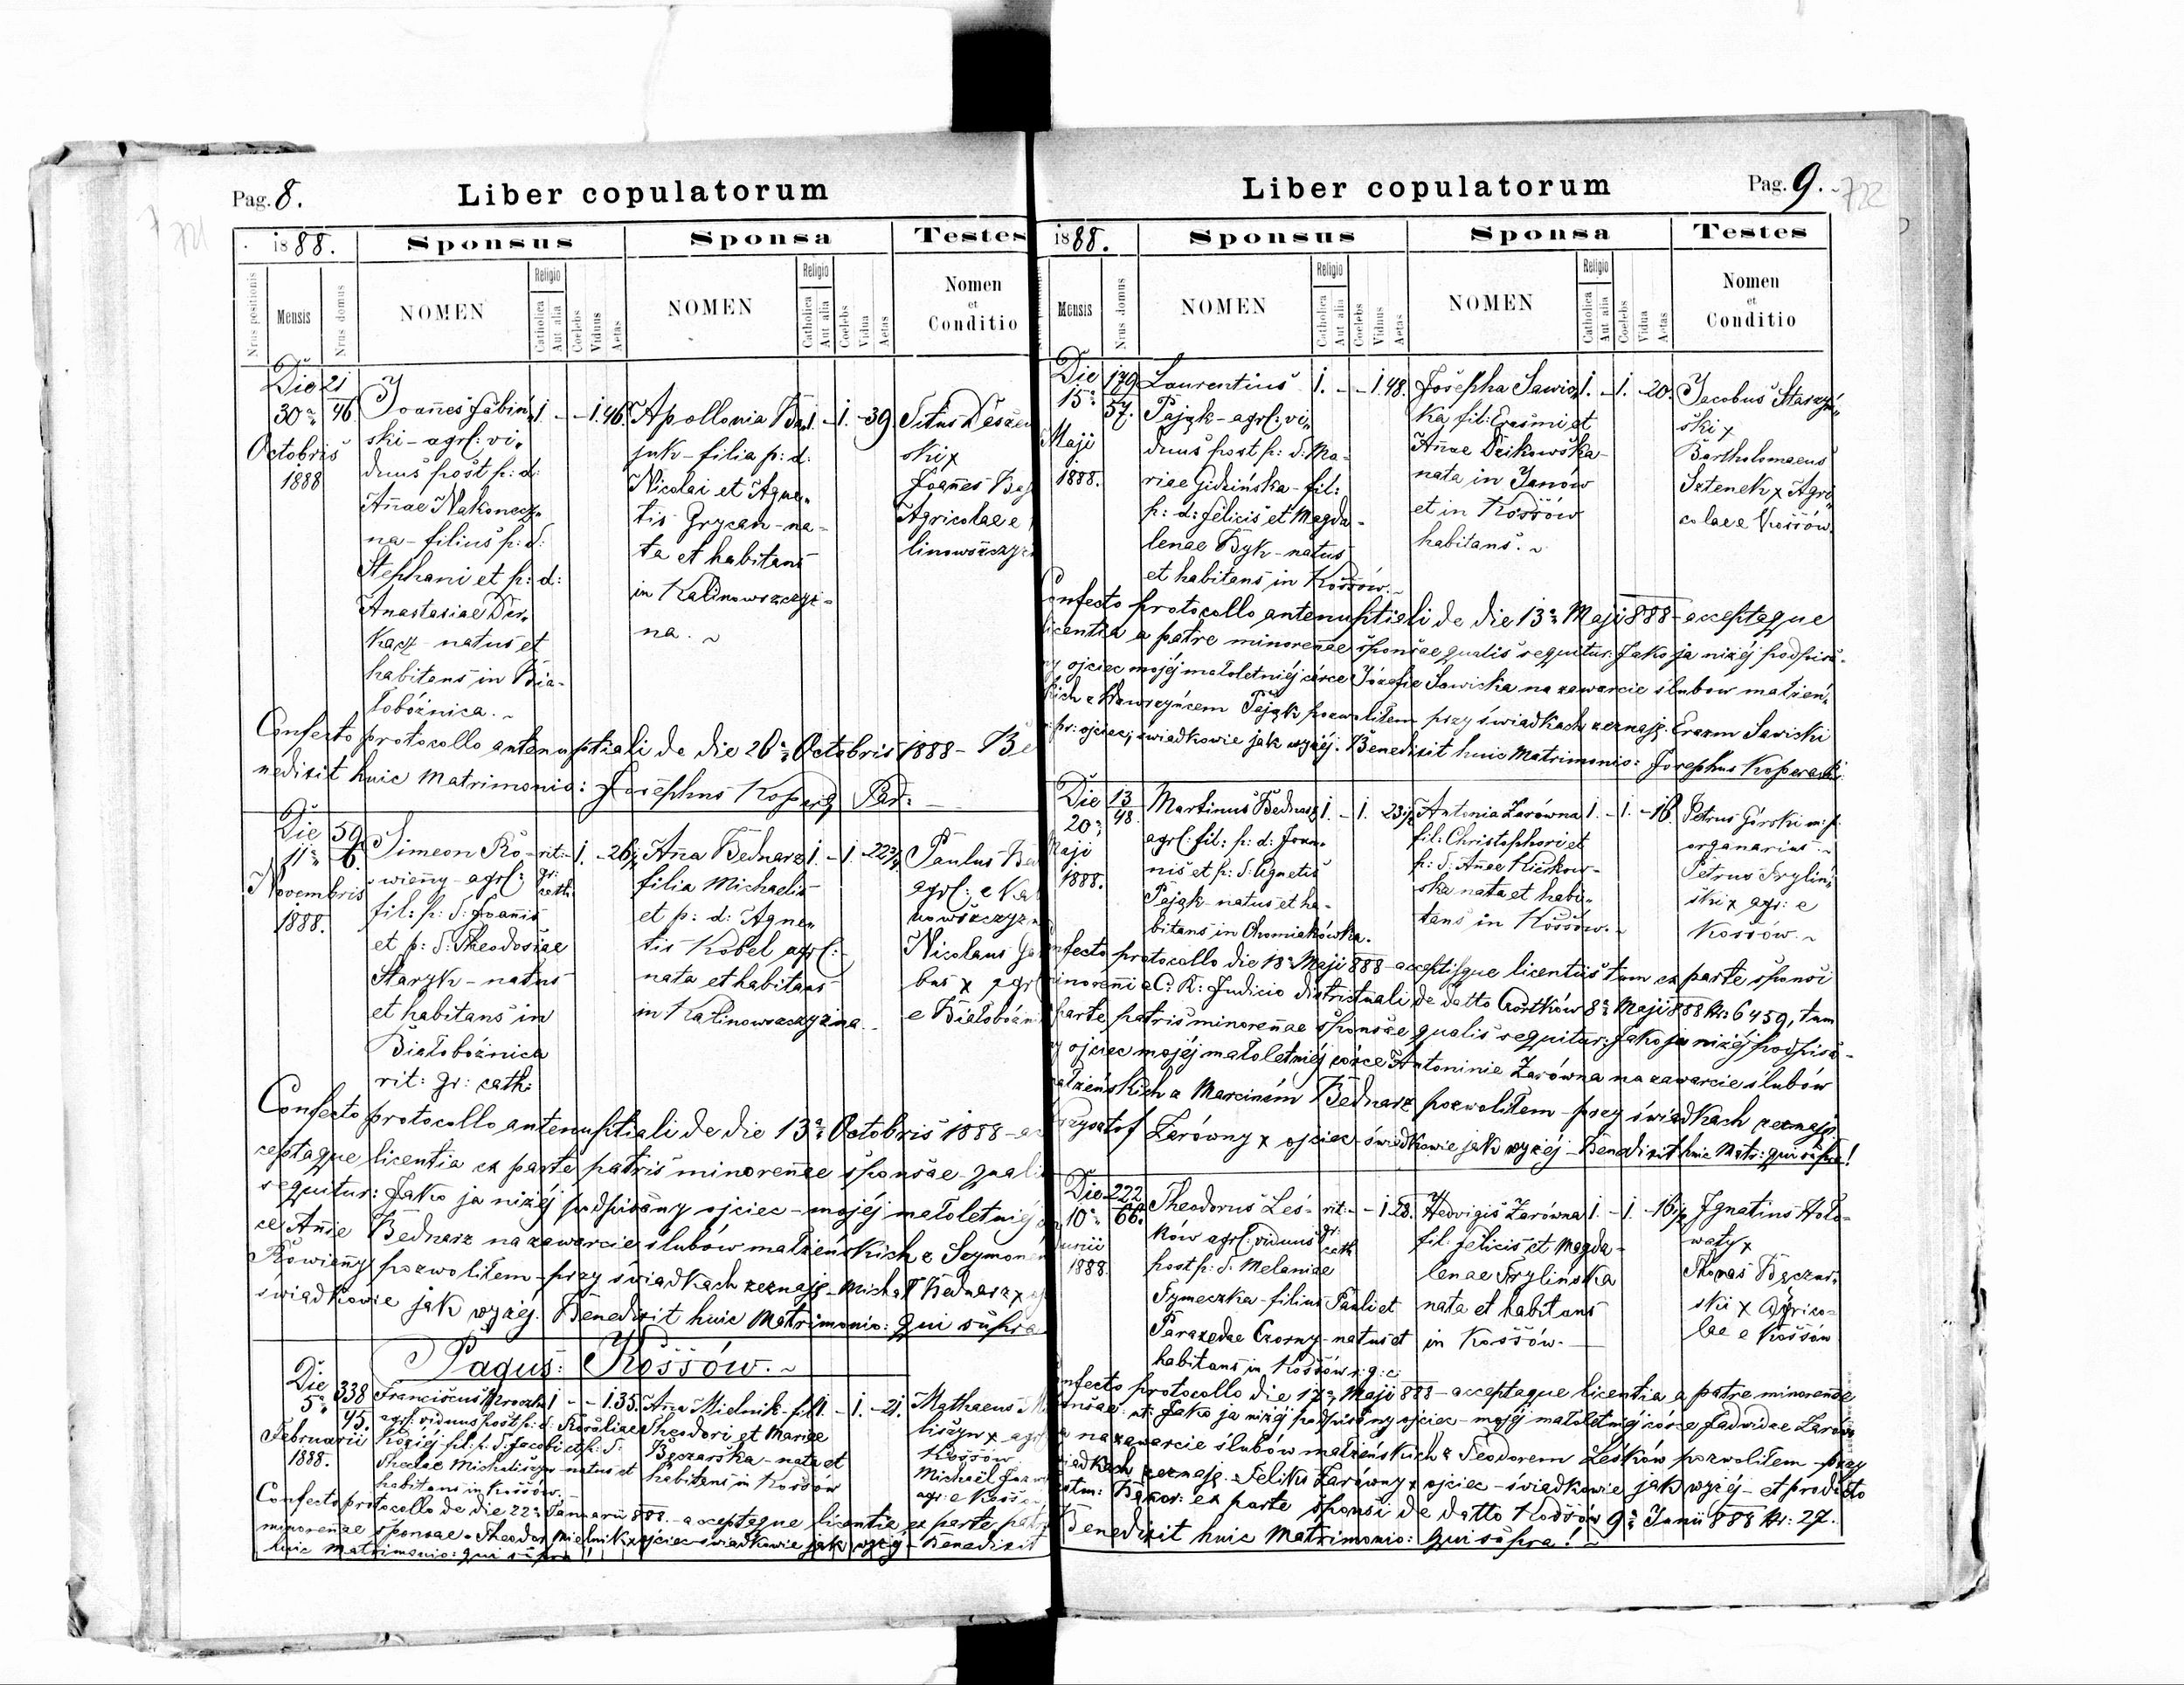 Pag. 8.
Liber copulatorum
1888.
Sponsus
Sponsa
Testes
Nrus positionis
Mensis
Nrus domus
NOMEN
Religio
Catholica
Aut alia
Coelebs
Viduus
Aetas
NOMEN
Religio
Catholica
Aut alia
Coelebs
Vidua
Aetas
Nomen
et
Conditio
Die
30a
Octobris
1888
21
46
Joannes Jabiń„
ski – agrl: vi„
duus post p: d:
Annae Nakonecz„
na – filius p: d:
Stephani et p: d:
Anastasiae Der„
kacz – natus et
habitans in Bia-
łobóżnica. ~
1. - - 1. 46.
Apollonia
juk – filia p: d:
Nicolai et Agne„
tis Grycan – na-
ta et habitans
in Kalinowszczyz-
na. ~
1. - 1. - 39.
Titus
ski x
Joannes
Agricolae e
linowszczyz
Confecto protocollo antenuptiali de die 20a Octobris 1888 – Be
nedixit huic Matrimonio: Josephus Par:
Die
11a
Novembris
1888.
59
6.
Simeon Ró-
wienny – agrl:
fil: p: d: Joannis
et p: d: Theodosiae
Staryk – natus
et habitans in
Białobóżnica
rit: gr: cath:
rit: gr: cath.
1. - 26½
Anna Bednarz
filia Michaelis
et p: d: Agne„
tis Kobel agrl:
nata et habitans
in Kalinowszczyzna.
1. - 1. - 22¾
Paulus
agrl: e Kal
nowszczyz
Nicolaus
bus x agr
e Białobóżn
Confecto protocollo antenuptiali de die 13a Octobris 1888 – ac
ceptaque licentia ex parte patris minorennae sponsae quali
sequitur: Jako ja niżéj podpisany ojciec – mojéj małoletniéj
ce Annie Bednarz na zawarcie ślubów małżeńskich z Szymonem
Rówienny pozwoliłem – przy świadkach zeznaję – Michał Bednarz x
świadkowie jak wyżéj. Benedixit huic Matrimonio: qui supra
Pagus: Kossów. ~
Die
5a
Februarii
1888.
338
45.
Franciscus
agrl. viduus post p: d: Rosaliae
Koziéj fil: p: d: Jacobi et p: d:
Theclae Michaliszyn natus et
habitans in Kossów.
1 - - 1. 35.
Anna Mielnik – fil:
Theodori et Mariae
Bęczarska – nata et
habitans in Kossów
1. - 1. - 21.
Mathaeus
liszyn x agr
Kossów
Michaël
agr: e Kossó
Confecto protocollo de die 22a Januarii 888 – acceptaque licentia ex parte patr
minorennae sponsae – Theodor Mielnik x ojciec świadkowie jak wyżéj – Benedixit
huic Matrimonio: qui supra!
Pag. 9.
722
Liber copulatorum
1888.
Sponsus
Sponsa
Testes
Mensis
Nrus domus
NOMEN
Religio
Catholica
Aut alia
Coelebs
Viduus
Aetas
NOMEN
Religio
Catholica
Aut alia
Coelebs
Vidua
Aetas
Nomen
et
Conditio
Die
15a
Maji
1888.
179
57.
Laurentius
Pająk – agrl: vi„
duus post p: d: Ma-
riae Gidzińska – fil:
p: d: Felicis et Magda-
lenae Byk – natus
et habitans in Kossów. ~
1. - - 1. 48.
Josepha Sawic„
ka fil: Erasmi et
Annae Dzikowska –
nata in Janów
et in Kossów
habitans. ~
1. - 1. - 20.
Jacobus Starzyń„
ski x
Bartholomaeus
Sztenek x Agri„
colae e Kossów.
onfecto protocollo antenuptiali de die 13a Maji 888 – acceptaque
licentia a patre minorennae sponsae qualis sequitur: Jako ja niżéj podpisa-
ny ojciec mojéj małoletniéj córce Józefie Sawicka na zawarcie ślubow małżeń„
skich z Wawrzyńcem Pająk pozwoliłem przy świadkach zeznaję. Erazm Sawicki
pr: ojciec, świadkowie jak wyżéj. Benedixit huic Matrimonio: Josephus
Die
20a
Maji
1888.
13
48.
Martinus Bednarz
agrl: fil: p: d: Joan„
nis et p: d: Agnetis
Pająk – natus et ha-
bitans in Chomiakówka.
1. - 1. 23½
Antonia Żarówna
fil: Christophori et
p: d: Annae
ska nata et habi„
tans in Kossów. ~
1. - 1. - 18.
Petrus Górski m: p:
organarius ~
Petrus Tryliń„
ski x agr: e
Kossów. ~
onfecto protocollo die 18a Maji 888 – acceptisque licentiis tam ex parte sponsi
minorenni a C: K: Judicio districtuali de datto Czortków 8a Maji 888 Nr: 6459, tam
parte patris minorennae sponsae qualis sequitur: Jako ja niżéj podpisa-
ny ojciec mojéj małoletniéj córce Antoninie Żarówna na zawarcie ślubów
ałżeńskich z Marcinem Bednarz pozwoliłem – przy świadkach zeznaję
rzysztof Żarówny x ojciec – świadkowie jak wyżéj – Benedixit huic Matr: qui supra!
Die
10a
Junii
1888.
222
66.
Theodorus Leś-
ków agrl. viduus
post p: d. Melaniae
Tymeczka – filius Pauli et
Parazedae Czorny – natus et
habitans in Kossów r: g: c:
rit: gr: cath
- - 1 28.
Hedvigis Żarówna
fil. Felicis et Magda-
lenae Trylinska
nata et habitans
in Kossów. –
1. - 1. - 16½
Ignatius Hoło-
waty x
Thomas Bęczar„
ski x Agrico-
lae e Kossów
onfecto protocollo die 17a Maji 888 – acceptaque licentia a patre minorennae
onsae: ut: Jako ja niżéj podpisany ojciec – mojéj małoletniéj córce Jadwidze Żarów
a na zawarcie ślubów małżeńskich z Teodorem Leśków pozwoliłem – przy
iadkach zeznaję. Feliks Żarówny x ojciec – świadkowie jak wyżéj – et producto
ex parte sponsi de datto Kossów 9a Junii 888 Nr: 27.
Benedixit huic Matrimonio: qui supra! ~